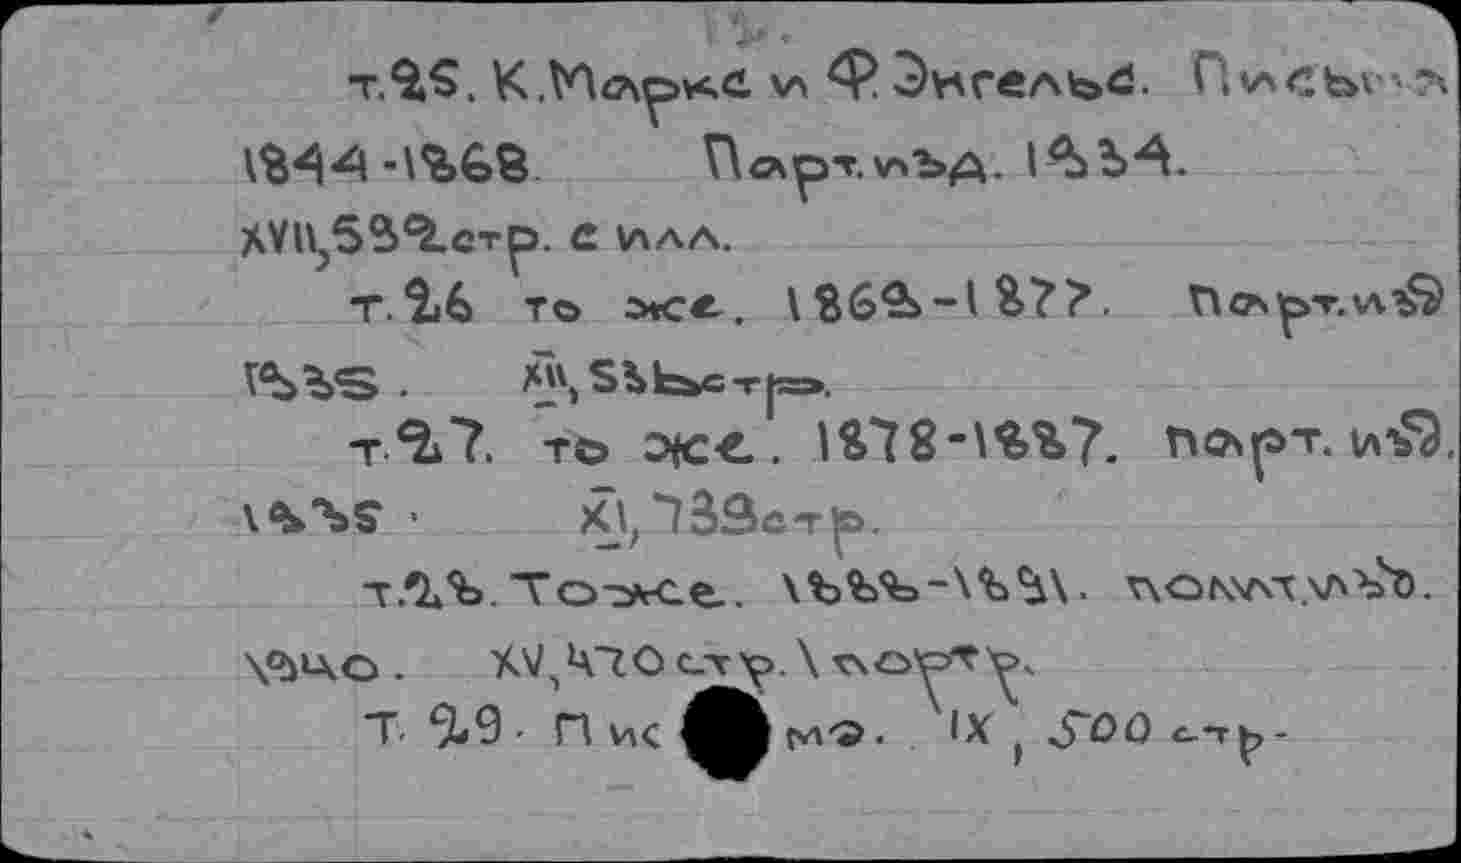 т.25. К.Маркс и Ф.Энгельс. Письма
1844-1868 Парт.изд. 1934.
XVII,592стр. с илл.
т.26 то же. 1868-1877. Парт.изд
1935. XII, 536стр.
т.27. то же. 1878-1887. парт. изд.
1935. XI, 738стр.
т.28. Тоже. 1888-1891. политизд.
1940. XV,470 стр. 1 портр.
т. 29. Пис ма. IX, 500 стр.